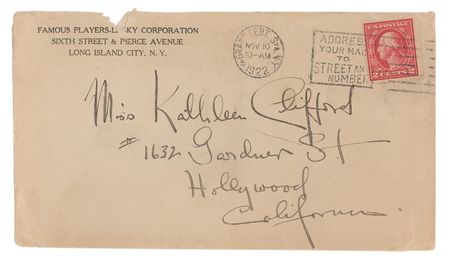 FAMOUS PLAYERS-L SKY CORPORATION
SIXTH STREET & PIERCE AVENUE
LONG ISLAND CITY, N. Y.
GRAND CENT. STA. N.Y.
NOV 10
10-AM
1922
ADDRESS
YOUR MAIL
TO
STREET AND
NUMBER
U.S. POSTAGE
2 CENTS 2
Miss Kathleen Clifford
# 1632 Gardner St
Hollywood
California